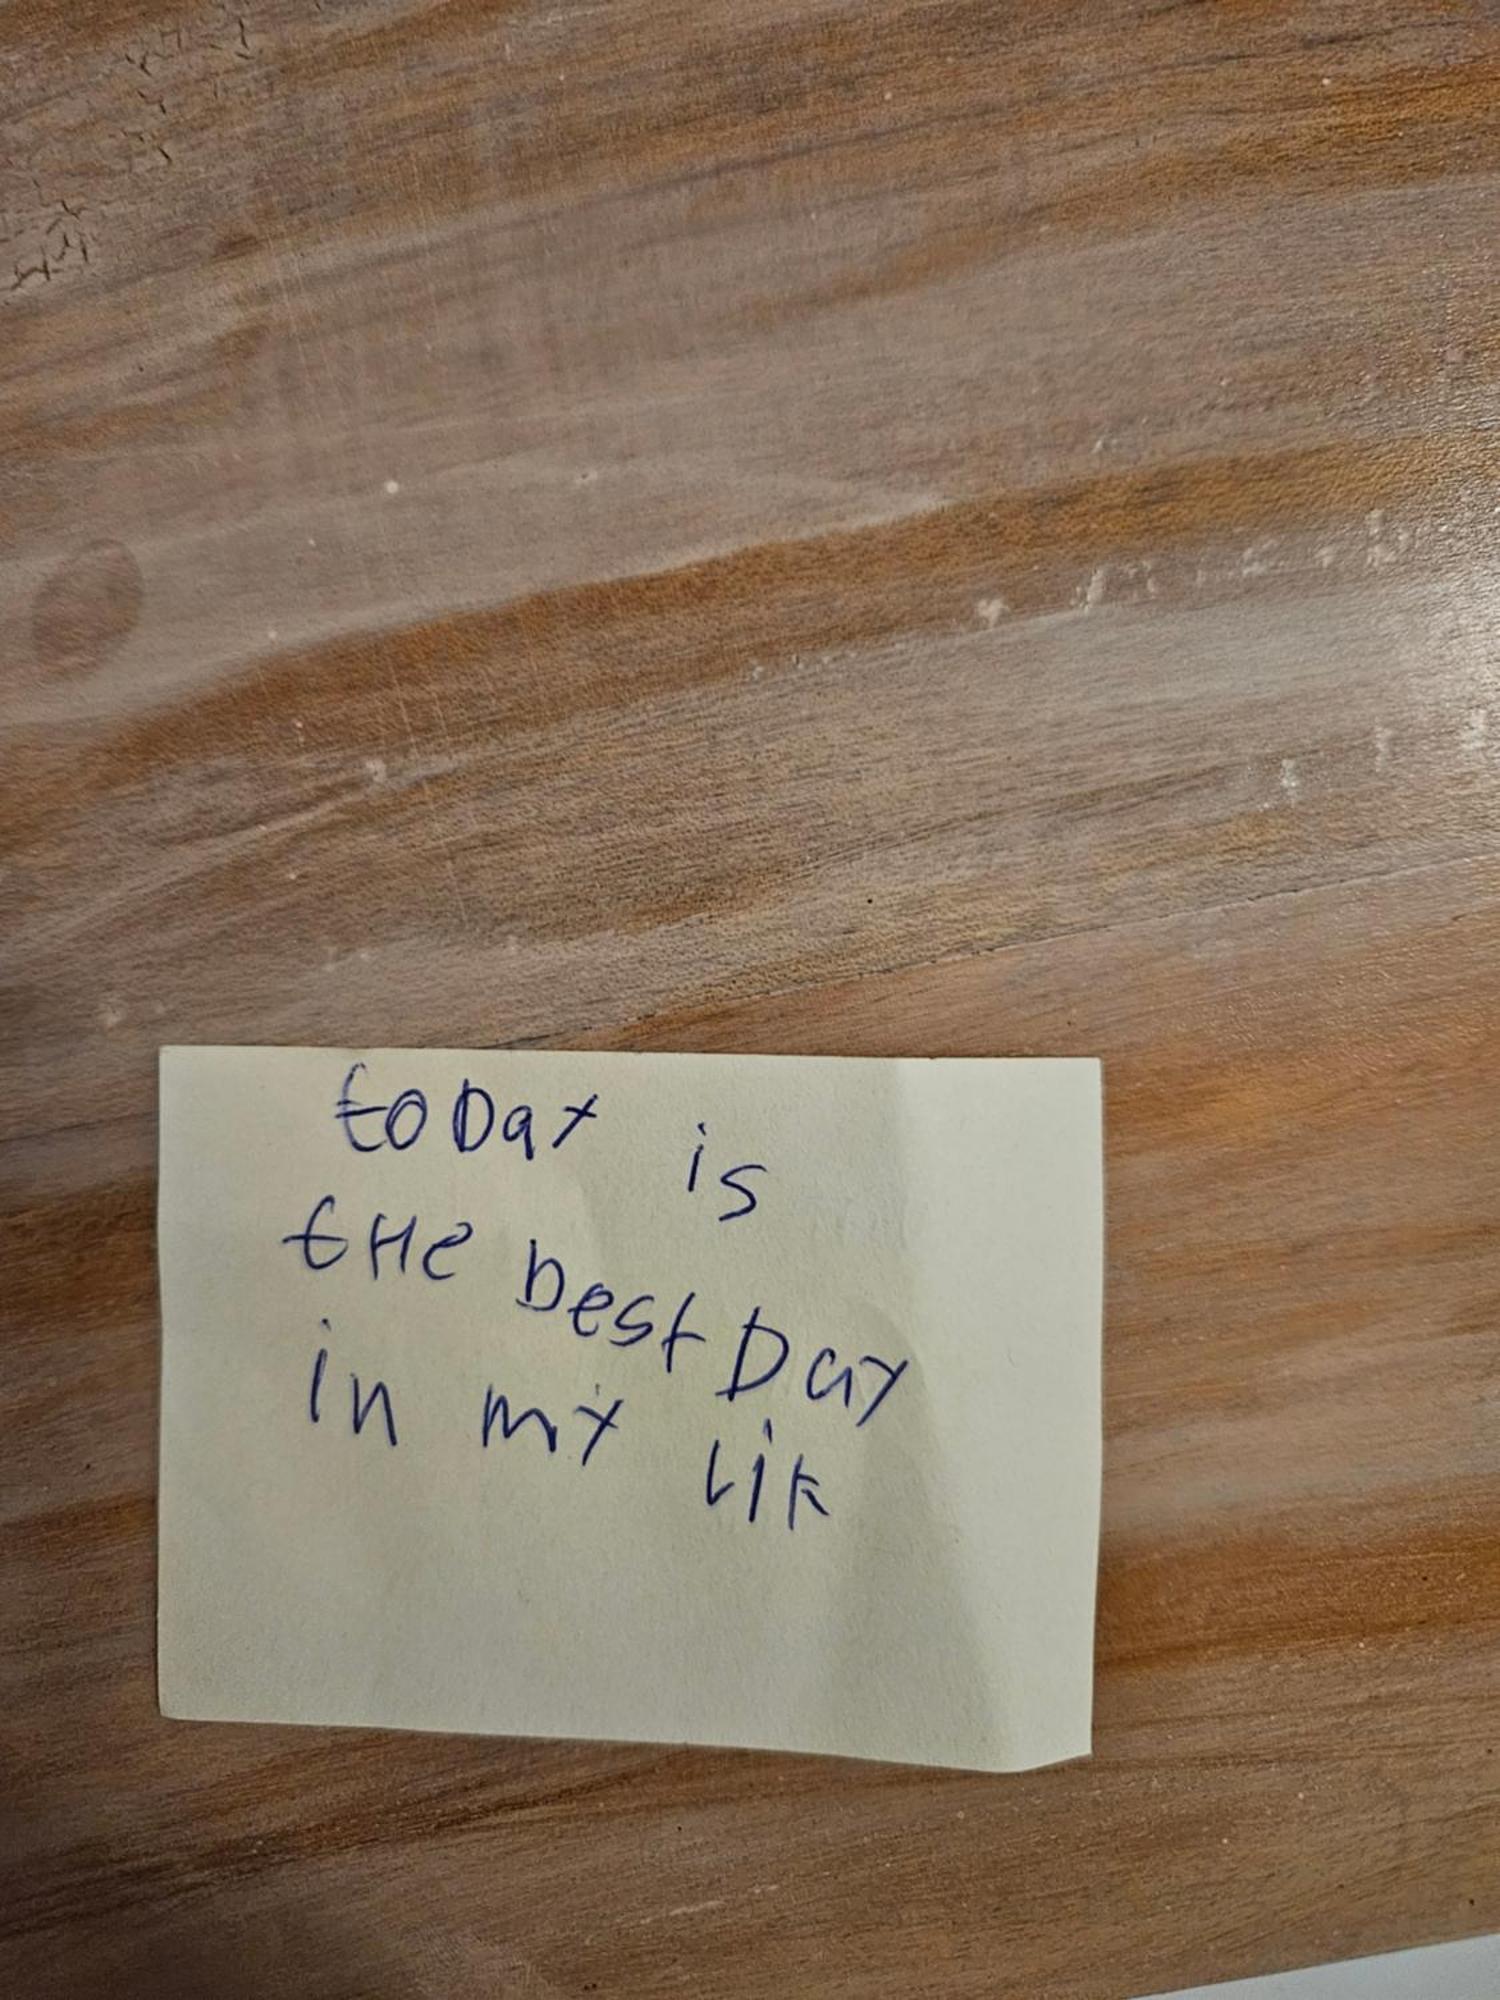 toDay is
tHe best Day
in my LiF